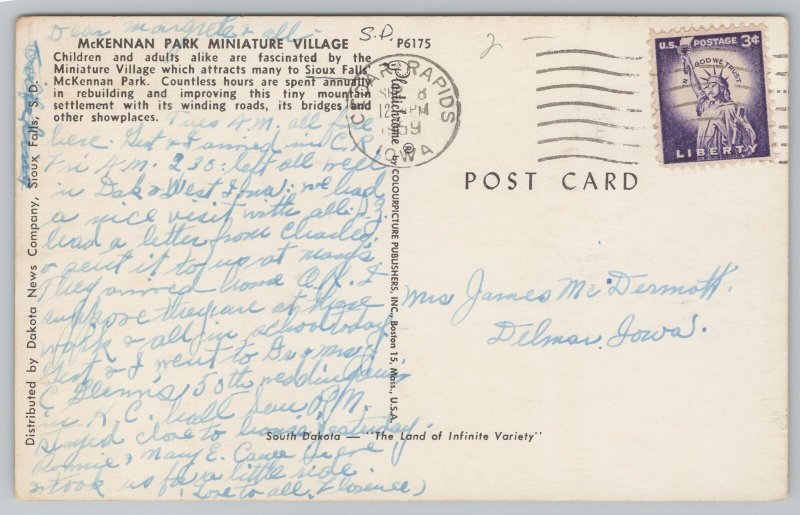 Dear Margrete & all:
S.D.
McKENNAN PARK MINIATURE VILLAGE
Children and adults alike are fascinated by the
Miniature Village which attracts many to Sioux Falls
McKennan Park. Countless hours are spent annually
in rebuilding and improving this tiny mountain
settlement with its winding roads, its bridges and
other showplaces.
Tues A.M. all fine
here. & I arrived in C.R.
Fri A.M. 2:30: left all well
in Dak & West Iowa: we had
a nice visit with all. I
had a letter from Charles,
& sent it to us at Mary's
They arrived home O.K. I
suppose they are at there
work & all in school today
& I went to Dr & Mrs
C Glenn's 50th wedding
in K.C. hall Sun P.M.
stayed close to home yesterday.
Ronnie & Mary E. came in eve
& took us for a little ride
Love to all, Florence)
Distributed by Dakota News Company, Sioux Falls, S. D.
P6175
2-
CEDAR RAPIDS
8
12 PM
1959
IOWA
Plastichrome® by COLOURPICTURE PUBLISHERS, INC., Boston 15, Mass., U.S.A.
U.S. POSTAGE 3¢
IN GOD WE TRUST
LIBERTY
POST CARD
Mrs James McDermott.
Delmar, Iowa.
South Dakota — "The Land of Infinite Variety"